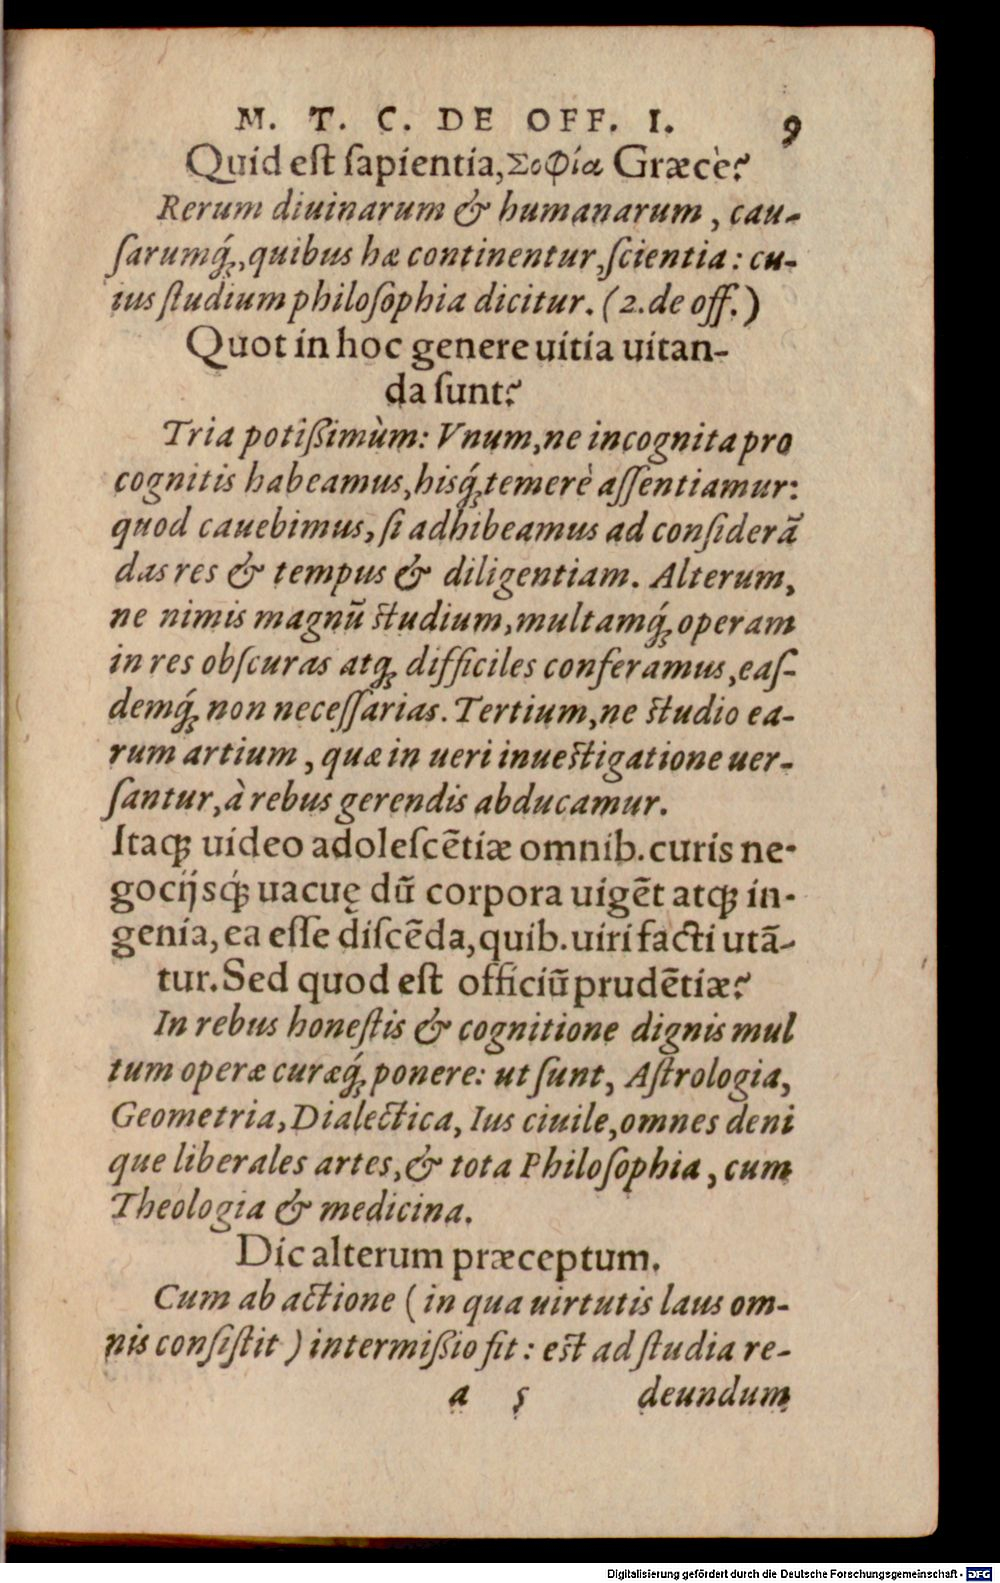 M. T. C. DE OFF. I. 9
Quid est sapientia, Σοφία Græcè?
Rerum diuinarum & humanarum, cau-
sarumq́;, quibus hæ continentur, scientia: cu-
ius studium philosophia dicitur. (2. de off.)
Quot in hoc genere uitia uitan-
da sunt?
Tria potißimùm: Vnum, ne incognita pro
cognitis habeamus, hisq́; temerè assentiamur:
quod cauebimus, si adhibeamus ad considerā
das res & tempus & diligentiam. Alterum,
ne nimis magnū studium, multamq́; operam
in res obscuras atq; difficiles conferamus, eas-
demq́; non necessarias. Tertium, ne studio ea-
rum artium, quæ in ueri inuestigatione uer-
santur, à rebus gerendis abducamur.
Itaq; uideo adolescētiæ omnib. curis ne-
gocijsq́; uacuę dū corpora uigēt atq; in-
genia, ea esse discēda, quib. uiri facti utā-
tur. Sed quod est officiū prudētiæ?
In rebus honestis & cognitione dignis mul
tum operæ curæq́; ponere: ut sunt, Astrologia,
Geometria, Dialectica, Ius ciuile, omnes deni
que liberales artes, & tota Philosophia, cum
Theologia & medicina.
Dic alterum præceptum.
Cum ab actione (in qua uirtutis laus om-
nis consistit) intermißio fit: est ad studia re-
a 5 deundum
Digitalisierung gefördert durch die Deutsche Forschungsgemeinschaft - DFG